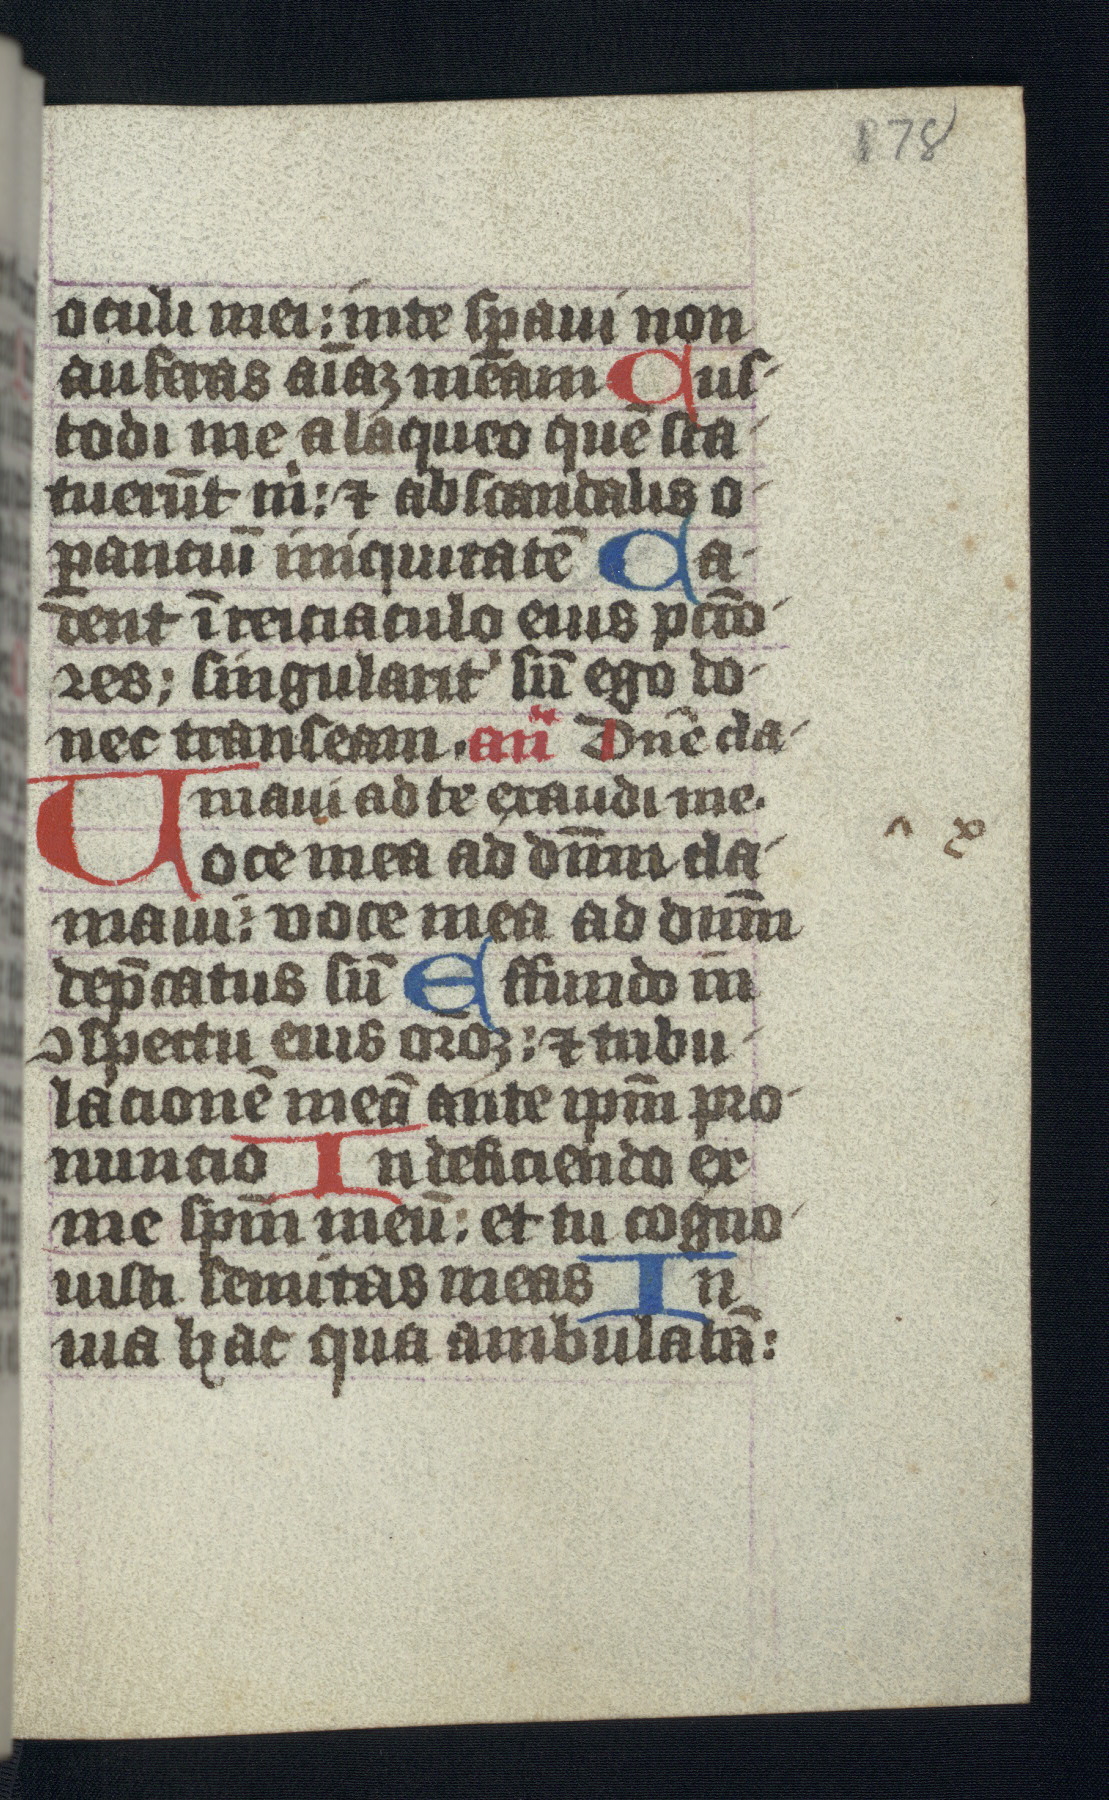 178
oculi mei: inte sꝑaui non
auferas aīaꝫ mēam Cus-
todi me a laqueo quē sta-
tuerūt m̄: ⁊ ab scandalis o-
ꝑanciū iniquitatē Ca-
dent ī reciaculo eius pctō-
res; singularit' sū ego do-
nec transeam. añ Dnē cla-
maui ad te exaudi me.
Uoce mea ad dn̄m cla-
maui: voce mea ad dn̄m
dep̄catus sū Effundo in
ꝯspectu eius orōꝫ: ⁊ tribu-
lacionē meā ante ipm̄ pro-
nuncio In deficiendo ex
me spm̄ meū: et tu cogno-
uisti semitas meas In
uia hac qua ambulabā: